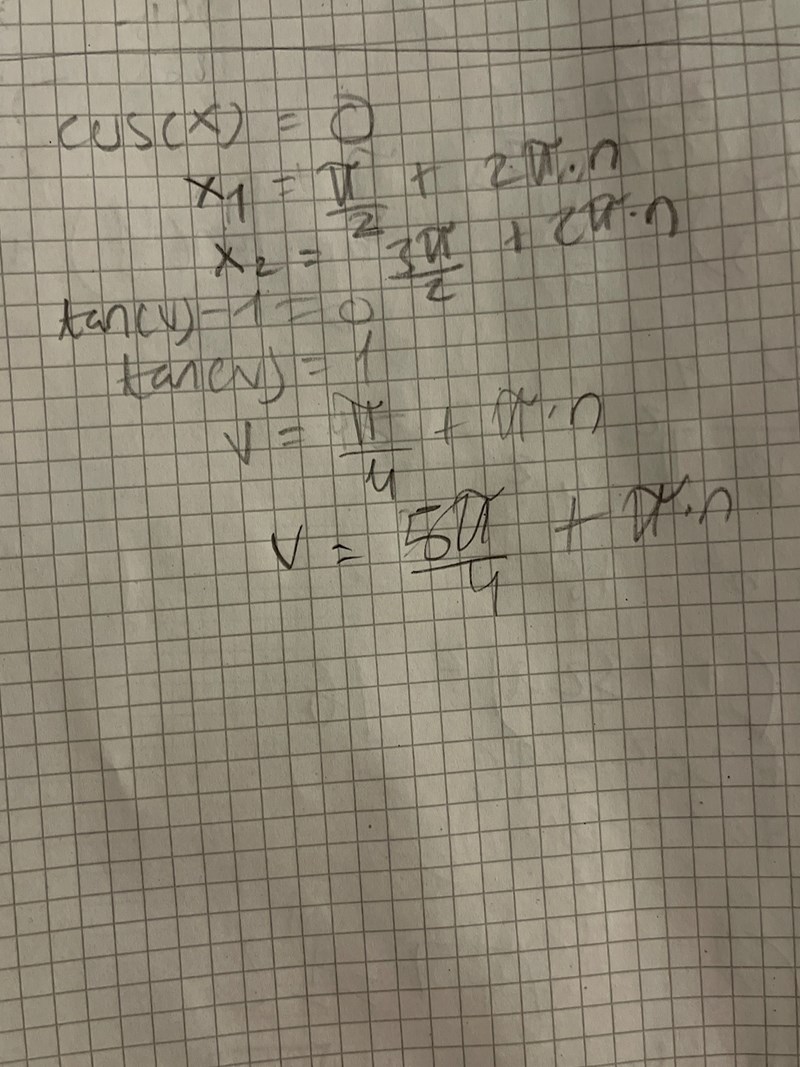 cos(x) = 0
x₁ = π/2 + 2π·n
x₂ = 3π/2 + 2π·n
tan(v) - 1 = 0
tan(v) = 1
v = π/4 + π·n
v = 5π/4 + π·n